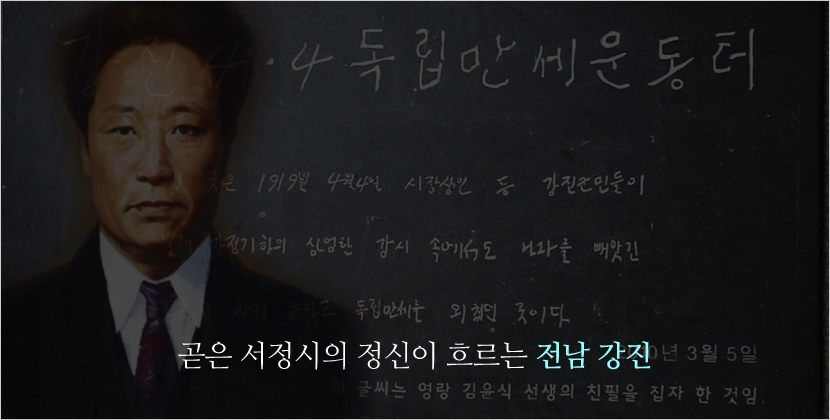 강진 4·4 독립만세운동터
곳은 1919년 4월4일 시장상인 등 강진군민들이
일제 강점기하의 삼엄한 감시 속에서도 나라를 빼앗긴
독립만세를 외쳤던 곳이다
곧은 서정시의 정신이 흐르는 전남 강진
0년 3월 5일
글씨는 영랑 김윤식 선생의 친필을 집자 한 것임.